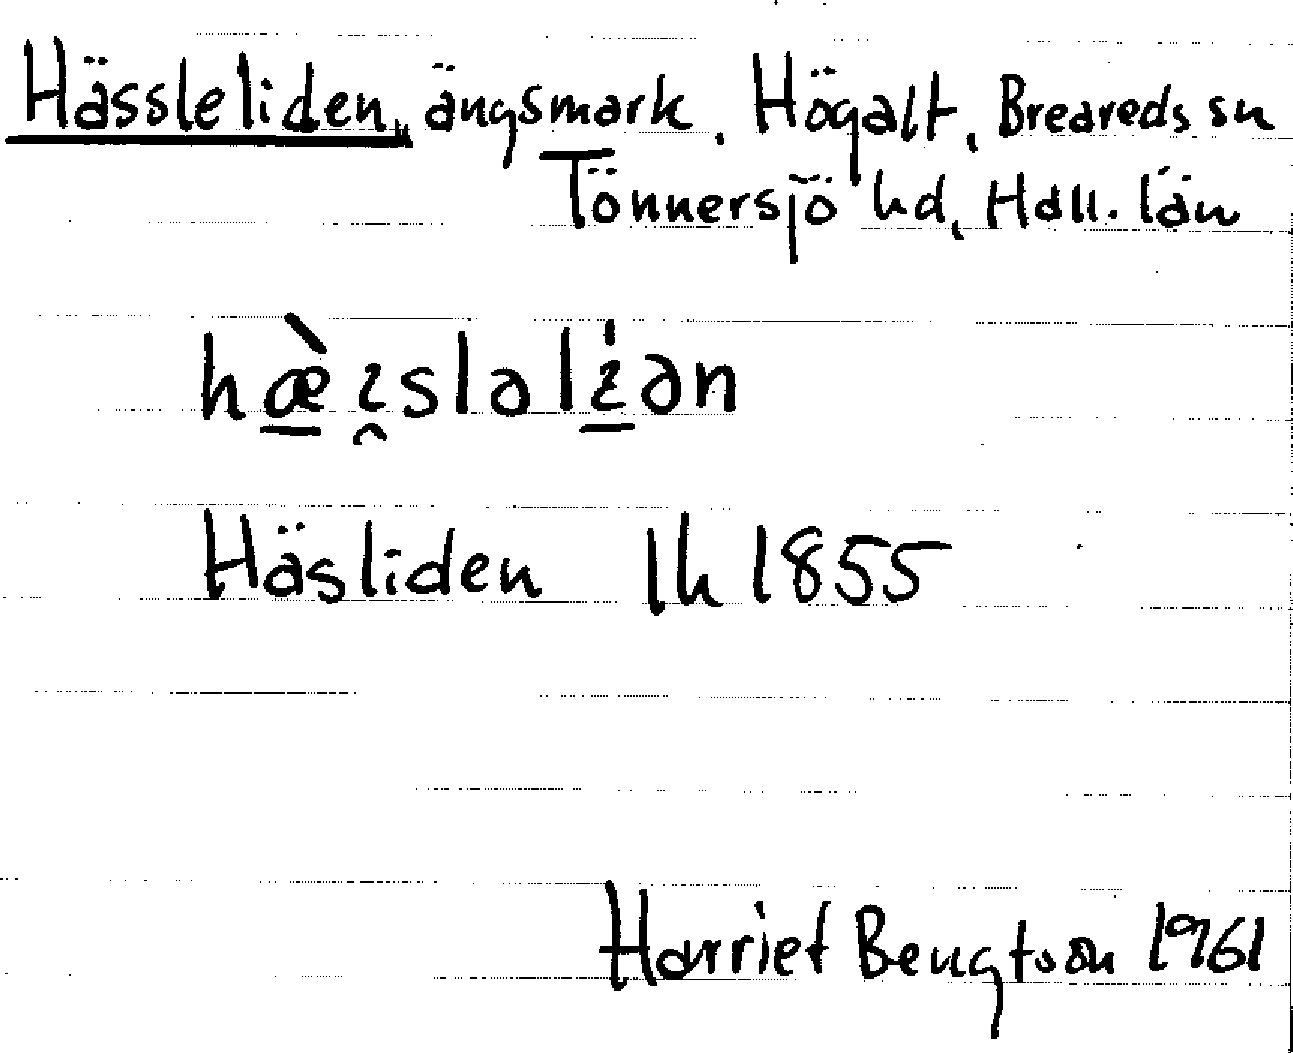 Hässleliden, ängsmark, Högalt, Breareds sn
Tönnersjö hd, Hall. län
hæ̱̀ɩ̯sləlɩ̱́ən
Häsliden lh 1855
Harriet Bengtson 1961